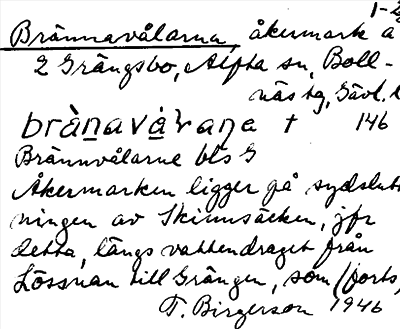 1-2
Brännavålarna, åkermark å
2 Grängsbo, Alfta sn, Boll-
näs tg, Gävl. l
brànavàrana † 146
Brännvålarne bls G
Åkermarken ligger på sydslutt
ningen av Skinnsäcken, jfr
detta, längs vattendraget från
Lössnan till Grängen, som (forts,
T. Birgerson 1946